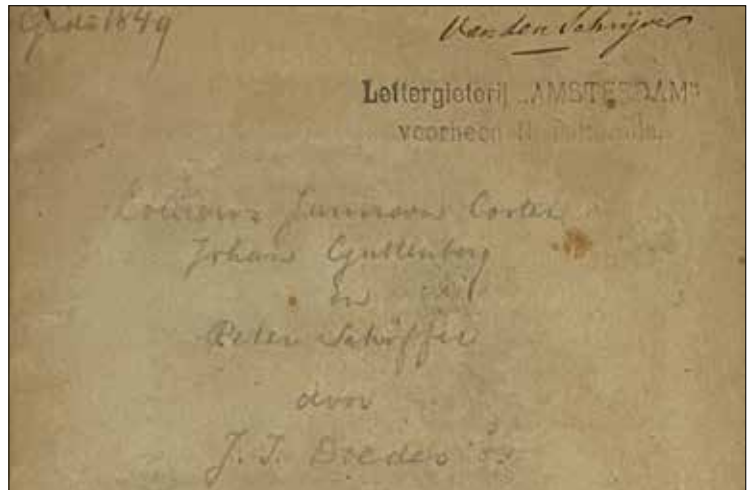 Gids 1849
Van den Schrijver
Lettergieterij „AMSTERDAM"
voorheen N. Tetterode.
Lourens Janszoon Coster
Johan Guttenberg
en
Peter Schöffer
door
J. I. Doedes